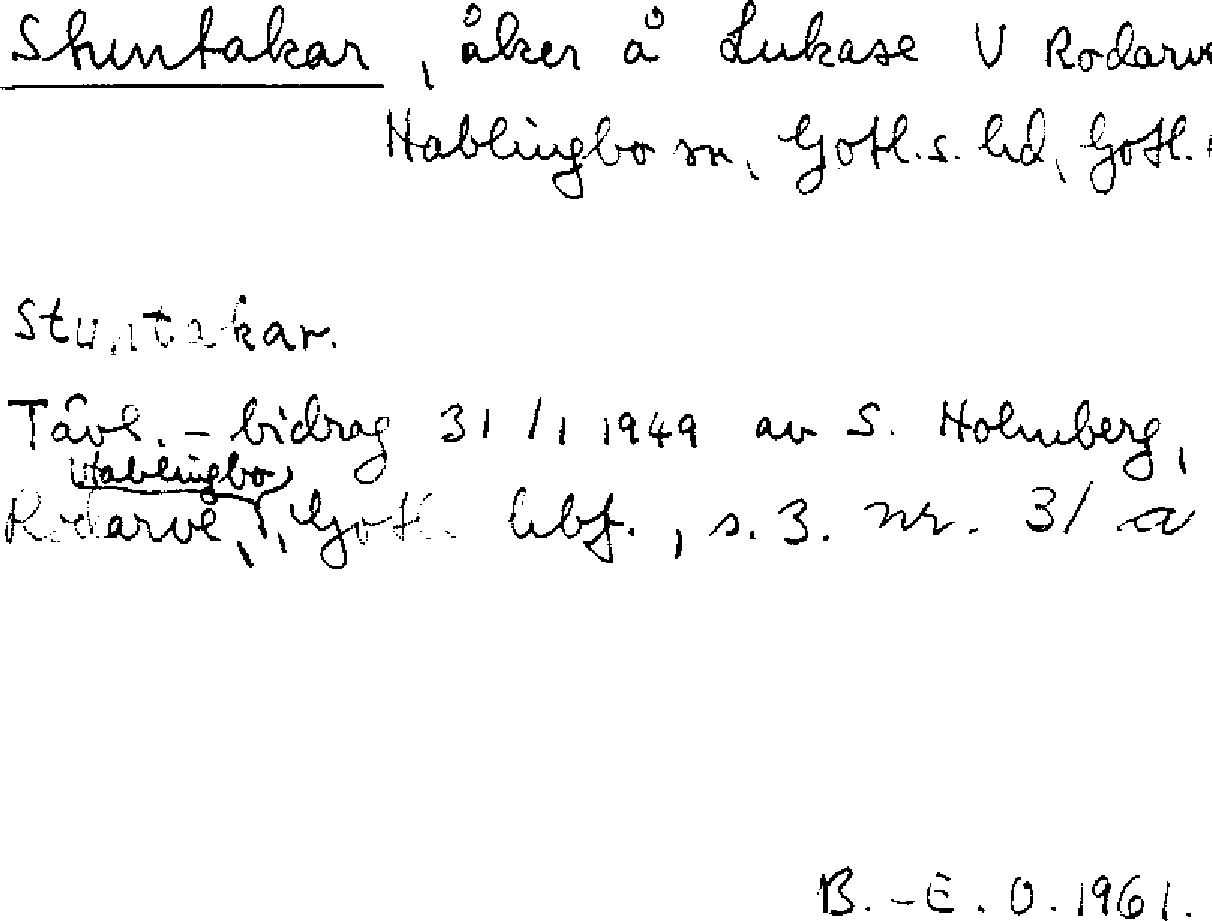 Stuntakar, åker å Lukase V Rodarve
Hablingbo sn, Gotl.s. hd, Gotl.
Stuntakar.
Tävl. - bidrag 31/1 1949 av S. Holmberg,
Hablingbo
Rodarve, Gotl. hbf., s. 3. nr. 31 a
B.-E. O. 1961.